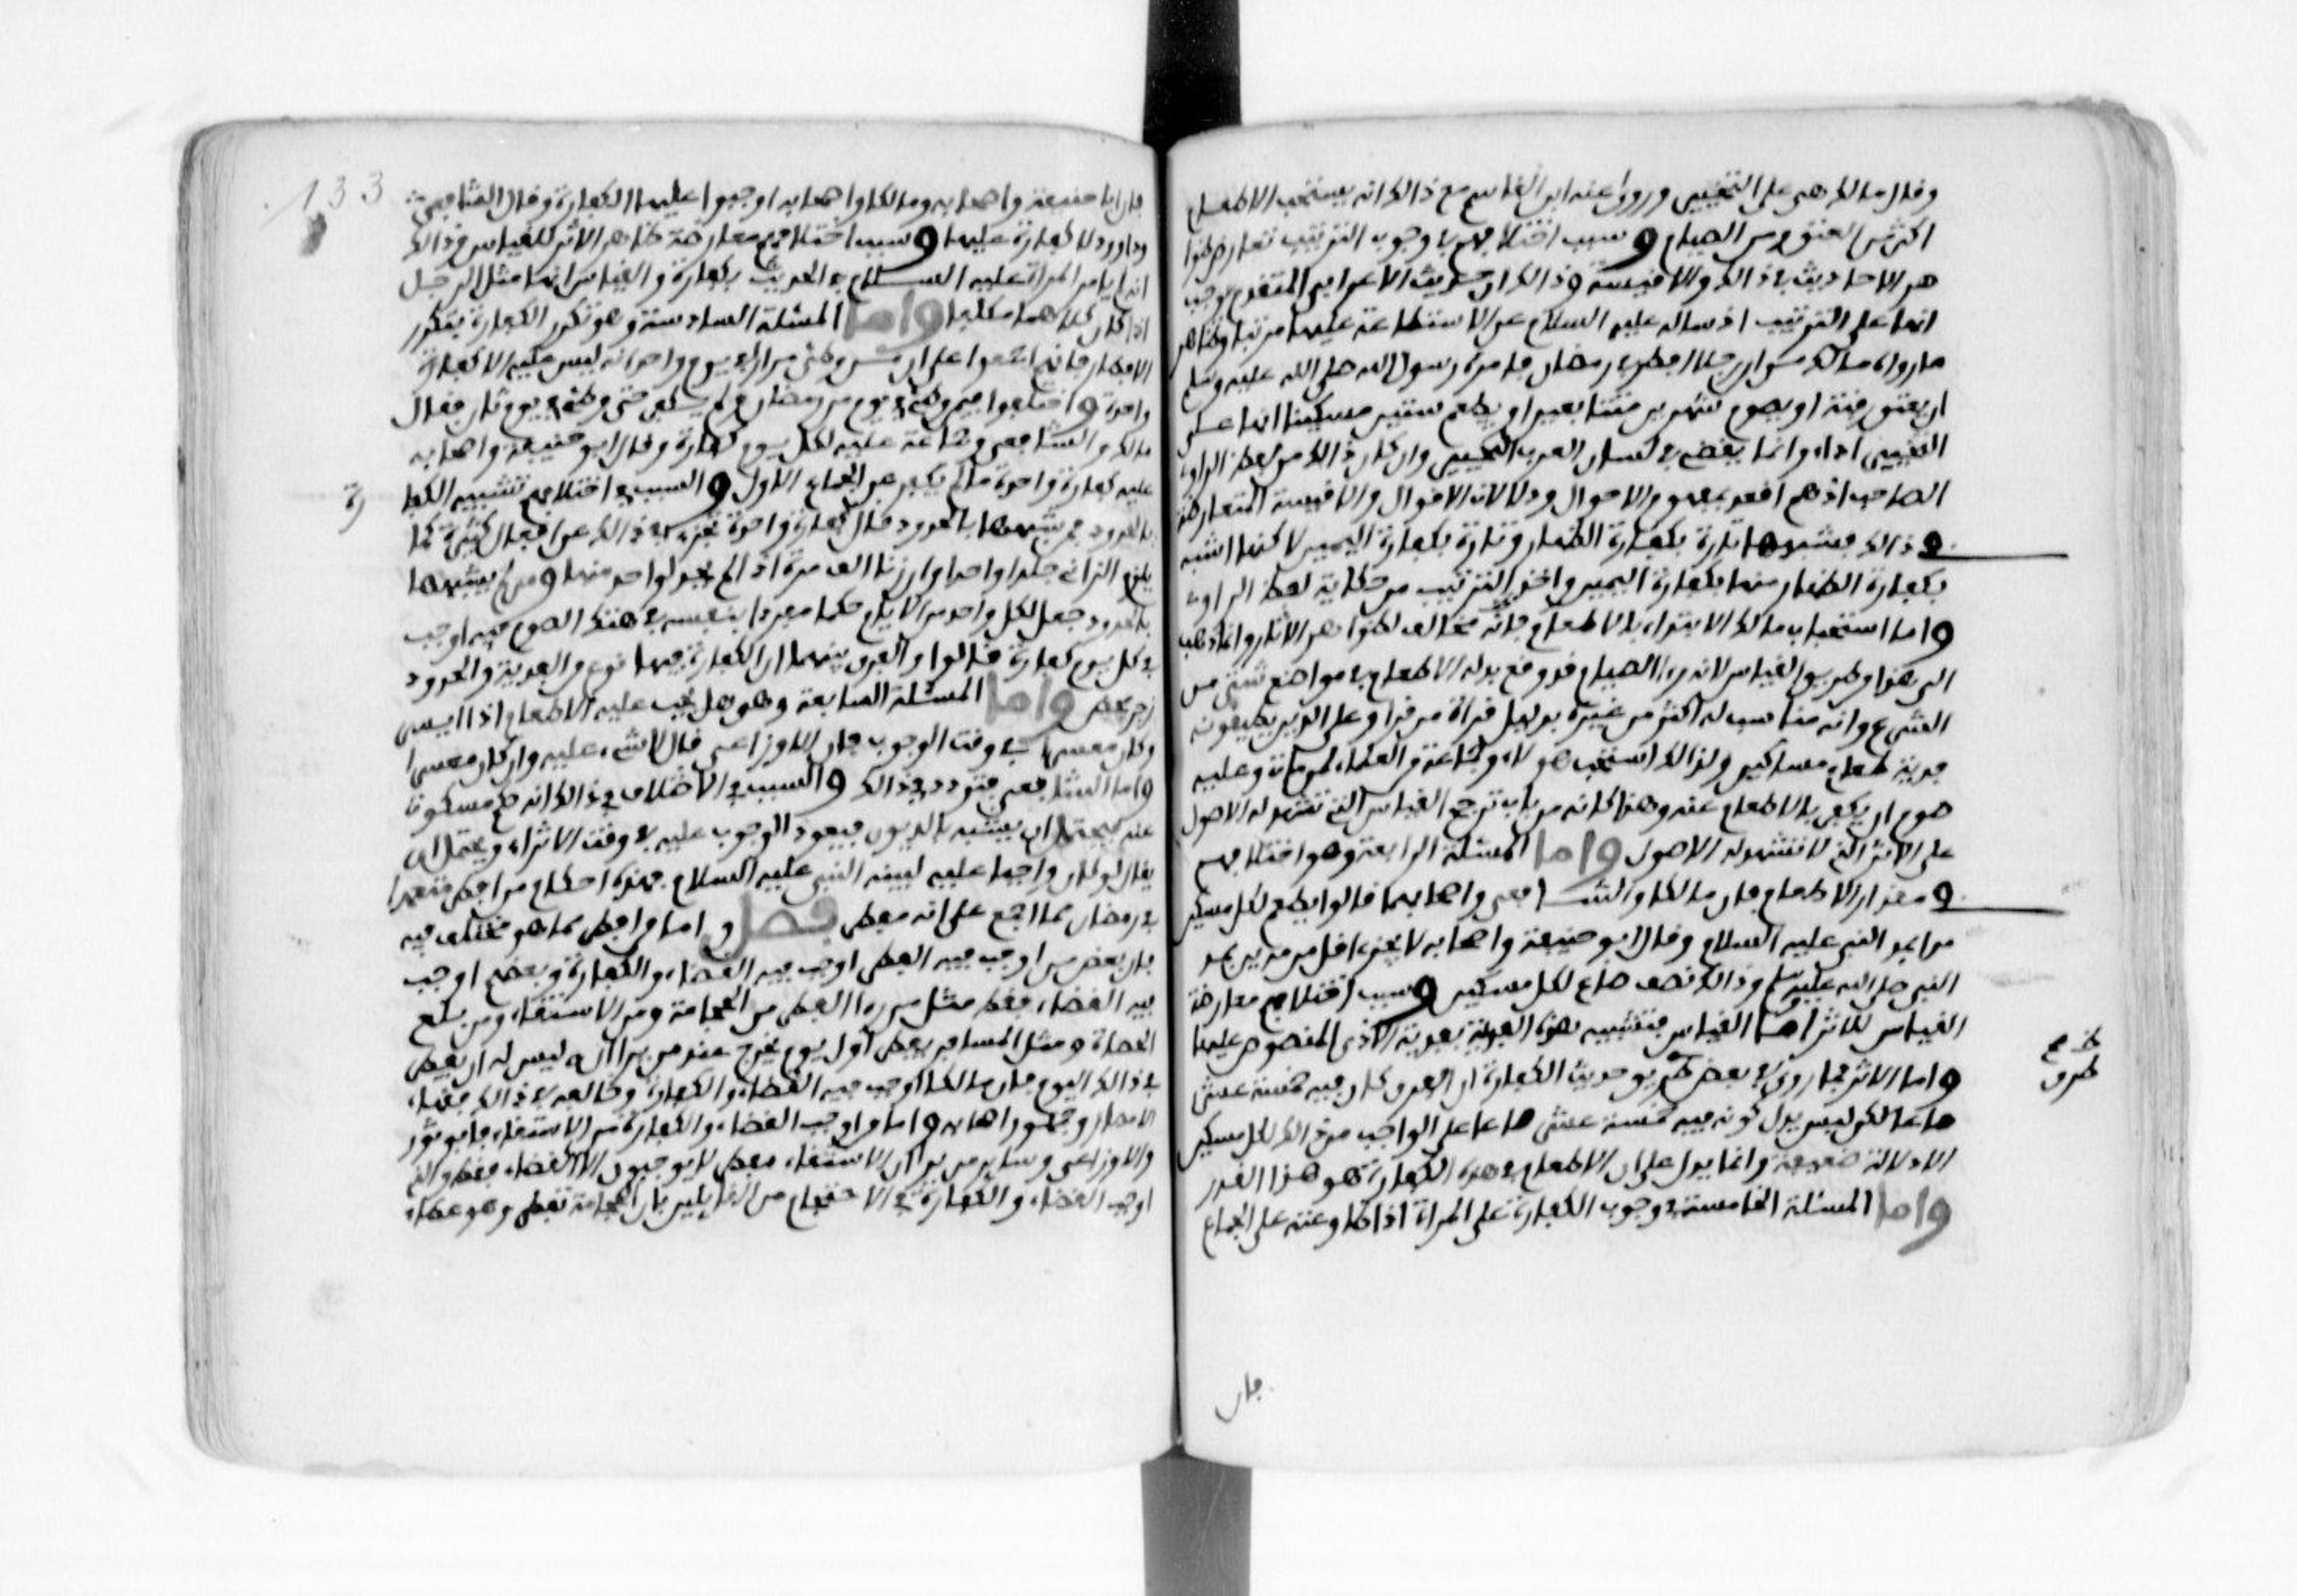 وقال مالك هي على التخيير وروى عنه ابن القاسم مع ذالك انه يستحب الاطعام
اكثر من العتق ومن الصيام وسبب اختلافهم في وجوب الترتيب تعارض ظوا
هر الاحاديث في ذالك والاقيسة وذالك ان حديث الاعرابي المتقدم يوجب
انها على الترتيب اذ ساله عليه السلام عن الاستطاعة عليها مرتبا وظاهر
ما رواه مالك من ان رجلا افطر في رمضان فامره رسول الله صلى الله عليه وسلم
ان يعتق رقبة او يصوم شهرين متتابعين او يطعم ستين مسكينا انها على
التخيير اذ او انما يقتضي في لسان العرب التخيير وان كان ذالك من لفظ الراوي
الصاحب اذ هم اقعد بمفهوم الاحوال ودلالات الاقوال والاقيسة المتعارضة
في ذالك فشبهها تارة بكفارة الظهار وتارة بكفارة اليمين لاكنها اشبه
بكفارة الظهار منها بكفارة اليمين واخذ الترتيب من حكاية لفظ الراوي
واما استحباب مالك الابتداء بالاطعام فانه مخالف لظواهر الاثار وانما ذهب
الى هذا من طريق القياس لانه راى الصيام قد وقع بدله الاطعام في مواضع شتى من
الشرع وانه مناسب له اكثر من غيره بدليل قراة من قرا وعلى الذين يطيقونه
فدية طعام مساكين ولذالك استحب هو لاء وجماعة من العلماء لمن مات وعليه
صوم ان يكفر بالاطعام عنه وهذا كانه من باب ترجيح القياس الذي تشهد له الاصول
على الاثر الذي لا تشهد له الاصول واما المسئلة الرابعة وهو اختلافهم
في مقدار الاطعام فان مالكا والشافعي واصحابهما قالوا يطعم لكل مسكين
مدا بمد النبي عليه السلام وقال ابو حنيفة واصحابه لا يجزء اقل من مدين بمد
النبي صلى الله عليه وسلم وذالك نصف صاع لكل مسكين وسبب اختلافهم معارضة
القياس للاثر اما القياس فتشبيه هذه الفدية بفدية الاذى المنصوص عليها
واما الاثر فما روي في بعض طرق حديث الكفارة ان الفرق كان فيه خمسة عشر
صاعا لكن ليس يدل كونه فيه خمسة عشر صاعا على الواجب من ذالك لكل مسكين
الا دلالة ضعيفة وانما يدل على ان الاطعام في هذه الكفارة هو هذا القدر
واما المسئلة الخامسة في وجوب الكفارة على المراة اذا طاوعته على الجماع
فان
طرق
فان ابا حنيفة واصحابه ومالكا واصحابه اوجبوا عليها الكفارة وقال الشافعي
وداوود لا كفارة عليها وسبب اختلافهم معارضة ظاهر الاثر للقياس وذالك
انه لم يامر المراة عليه السلام في الحديث بكفارة والقياس انها مثل الرجل
اذا كان كلاهما مكلفا واما المسئلة السادسة وهو تكرر الكفارة بتكرر
الافطار فانهم اجمعوا على ان من وطئ مرارا في يوم واحد انه ليس عليه الا كفارة
واحدة واختلفوا فيمن وطئ في يوم من رمضان ولم يكفر حتى وطئ في يوم ثان فقال
مالك والشافعي وجماعة عليه لكل يوم كفارة وقال ابو حنيفة واصحابه
عليه كفارة واحدة ما لم يكفر عن الجماع الاول والسبب في اختلافهم تشبيه الكفا
رة
بالحدود فمن شبهها بالحدود قال كفارة واحدة تجزء في ذالك عن افعال كثيرة كما
يلزم الزاني جلدا واحدا وان زنا الف مرة اذا لم يحد لواحد منها ومن لم يشبهها
بالحدود جعل لكل واحد من الايام حكما مفردا بنفسه في هتك الصوم فيه اوجب
في كل يوم كفارة قالوا والفرق بينهما ان الكفارة فيها نوع من القربة والحدود
زجر محض واما المسئلة السابعة وهو هل يجب عليه الاطعام اذا ايسر
وكان معسرا في وقت الوجوب فان الاوزاعي قال لا شيء عليه وان كان معسرا
واما الشافعي فتردد في ذالك والسبب في الاختلاف في ذالك انه حكم مسكوت
عنه يحتمل ان يشبه بالديون فيعود الوجوب عليه في وقت الاثراء ويحتمل ان
يقال لو كان واجبا عليه لبينه النبي عليه السلام فهذه احكام من افطر متعمدا
في رمضان مما اجمع على انه مفطر فصل واما من افطر مما هو مختلف فيه
فان بعض من اوجب فيه الفطر اوجب فيه القضاء والكفارة وبعضهم اوجب
فيه القضاء فقط مثل من راى الفطر من الحجامة ومن الاستقاء ومن بلع
الحصاة ومثل المسافر يفطر اول يوم يخرج عند من يرى انه ليس له ان يفطر
في ذالك اليوم فان مالكا اوجب فيه القضاء والكفارة وخالفه في ذالك فقهاء
الامصار وجمهور اصحابه واما من اوجب القضاء والكفارة من الاستقاء فابو ثور
والاوزاعي وساير من يرى ان الاستقاء مفطر لا يوجبون الا القضاء فقط والذي
اوجب القضاء والكفارة في الاحتجام من القايلين بان الحجامة تفطر وهو عطاء
133